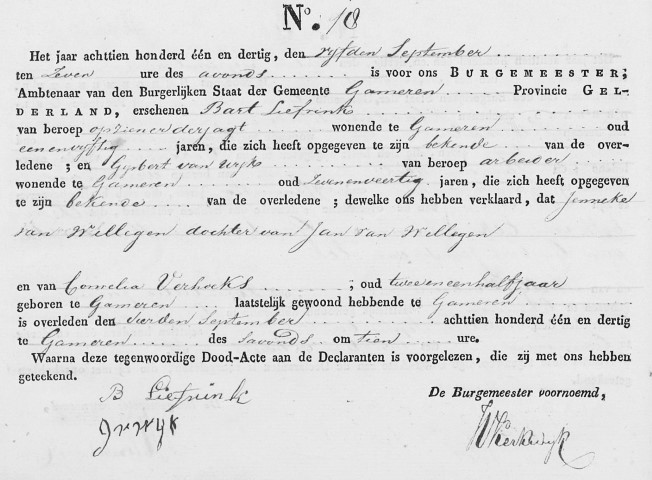 No. 18
Het jaar achttien honderd één en dertig, den vyfden September
ten Zeven ure des avonds is voor ons BURGEMEESTER;
Ambtenaar van den Burgerlijken Staat der Gemeente Gameren Provincie GEL-
DERLAND, erschenen Bart Liefrink
van beroep opziener der jagt wonende te Gameren oud
eenenvyftig jaren, die zich heeft opgegeven te zijn bekende van de over-
ledene; en Gysbert van Wyk van beroep arbeider
wonende te Gameren oud Zevenenveertig jaren, die zich heeft opgegeven
te zijn bekende van de overledene; dewelke ons hebben verklaard, dat Jenneke
van Willegen dochter van Jan van Willegen
en van Cornelia Verhoeks; oud twee en een half jaar
geboren te Gameren laatstelijk gewoond hebbende te Gameren
is overleden den vierden September achttien honderd één en dertig
te Gameren des savonds om tien ure.
Waarna deze tegenwoordige Dood-Acte aan de Declaranten is voorgelezen, die zij met ons hebben
geteekend.
B Liefrink
De Burgemeester voornoemd,
G v Wyk